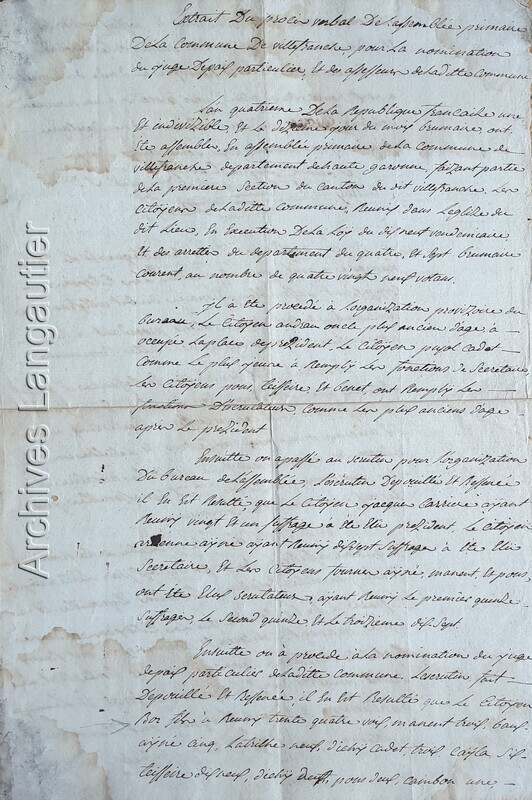 Extrait Du procés verbal De l'assemblée primaire
De la commune De villefranche, pour La nomination
du juge De paix particulier, Et des assesseurs de Laditte commune
L'an quatrieme De La Republique francaise une
Et indivizible, Et Le dixieme jour du mois brumaire, ont
Ete assembler, En assemblée primaire de La Commune de
villefranche departement de haute garonne, faizant partie
de La premiere section du canton du dit villefranche. Les
Citoyens de Laditte Commune, Reunis dans L'eglize du
dit Lieu, En Execution De La Loy du dix neuf vendemiaire
Et des arrettes du departement du quatre, et Sept brumaire
Courent, au nombre de quatre vingt neuf votans.
Il a été procedé à L'organization provizoire du
bureau, Le Citoyen andrau oncle plus ancien d'age, a
occupé La place de prezident, Le Citoyen pujol cadet
Comme Le plus jeune à Remply Les fonctions de Secretaire,
Les Citoyens pons, teisseire, Et benet, ont Remply Les
fonctions D'scrutateurs, comme Les plus anciens d'age
apres Le prezident
Ensuitte on a passé au scrutin pour L'organization
Du bureau de L'assemblée, L'scrutin Depouillé Et Ressencé
il En Est Rezulté que Le Citoyen jacque Carriere ayant
Reuny vingt et un suffrage à été Elu prezident, Le Citoyen
ainé ayant Reuny dix sept Suffrage à été Elu
Secretaire, Et Les Citoyens fournier ainé, manent, Et pons,
ont été Elus scrutateurs, ayant Reuny Le premier quinze
Suffrages, Le Second quinze, Et Le troizieme dix Sept
Ensuitte on à procedé à La nomination du juge
de paix particulier de Laditte Commune, L'scrutin fait
Depouillé Et Ressencé il En Est Rezulté que Le Citoyen
Bor à Reuny trente quatre voix, manent trois,
ainé cinq, neuf, cadet trois, Six,
teisseire dix neuf, pons deux, cambon une
Archives Langautier